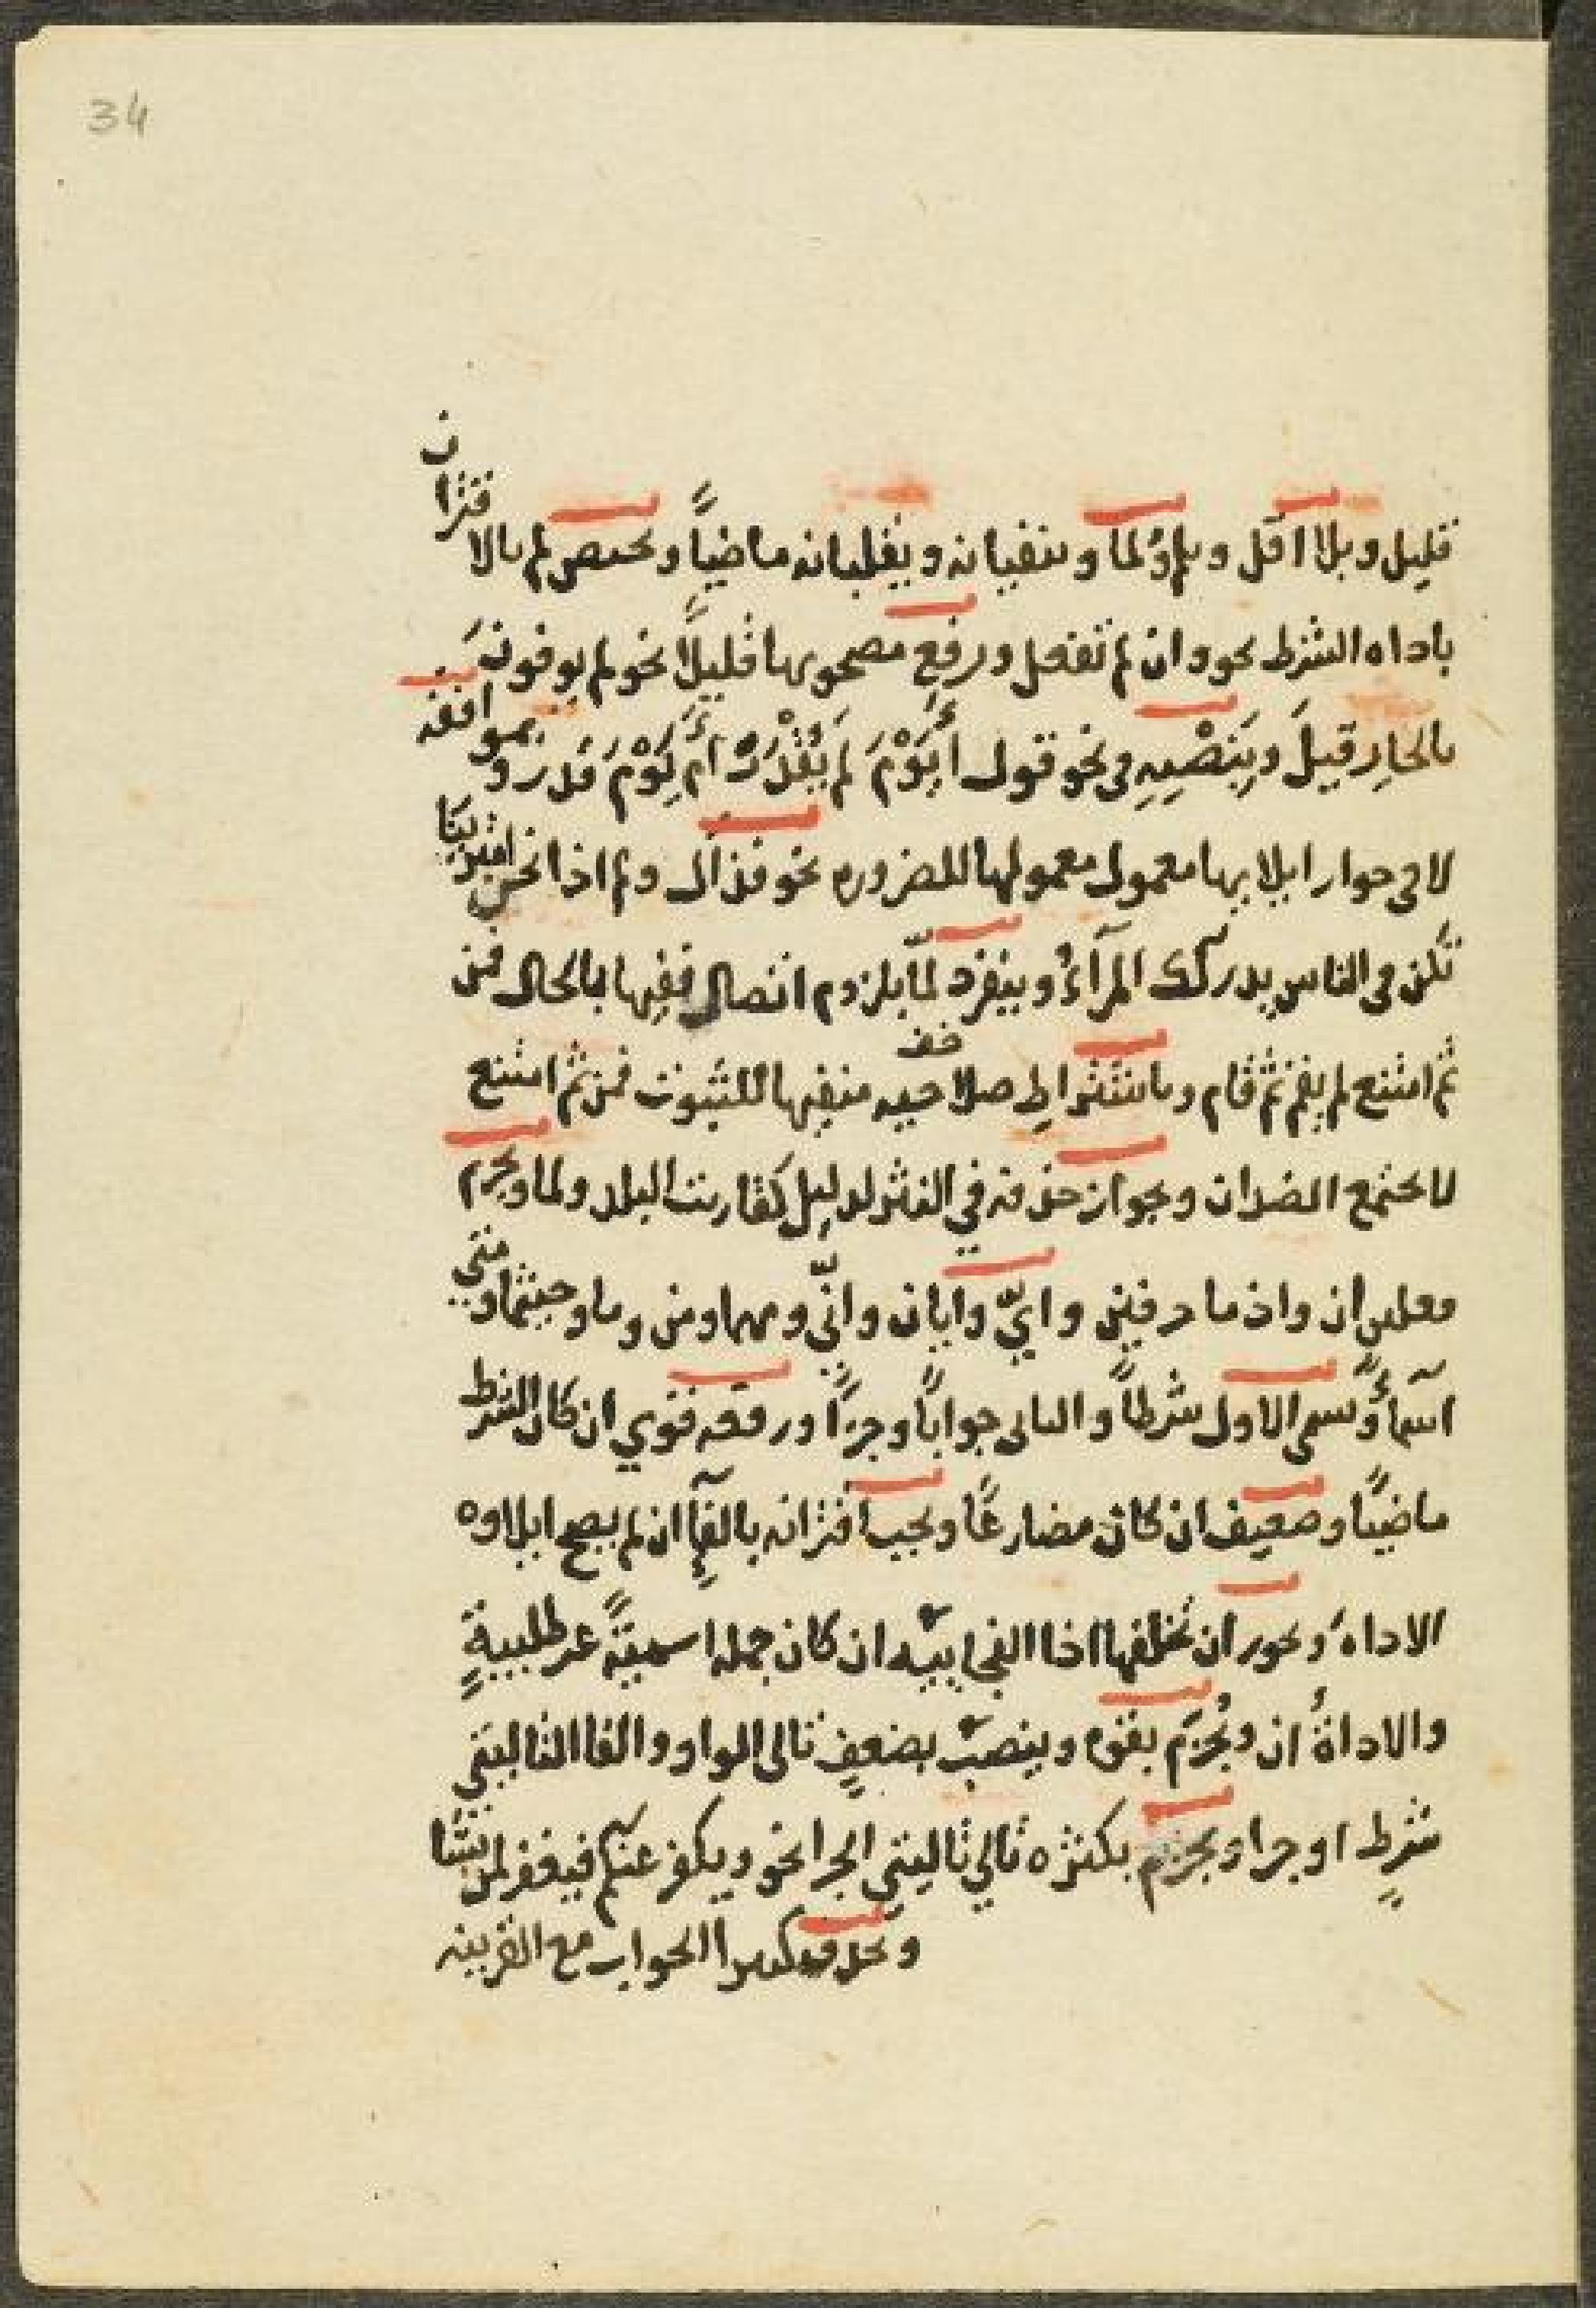 34
قليل وبلا اقل وبلم ولما وينفيانه ويقلبانه ماضياً ويختص لم بالاقتران
باداه الشرط نحو وان لم تفعل ورفع مصحوبها قليلاً نحو لم يوفون
بالجار قيل وينصبه في نحو قول أيَوْمَ لم يُقْدَرَ أم يَوْمَ قدر و بموافقه
لا في جواز ايلايها معمول معمولها للضروره نحو فذاك ولم اذا نحن امترينا
تكن في الناس يدركك المرآءُ وينفرد لمّا بلزوم اتصال نفيها بالحال فمن
ثم امتنع لم يقم ثم قام وباشتراط صلاحيه منفيها للثبوت فمن ثم امتنع
لما يجتمع الضدان وبجواز حذفه في النثر لدليل كقاربت البلد ولما ويجزم
فعلين ان واذ ما حرفين وايّ وايان وانّي ومهما ومن وما وحيثما ومتي
اسمآءً وسمي الاول شرطاً والثاني جواباً وجزاً ورفعه قوي ان كان الشرط
ماضيًا وضعيف ان كان مضارعًا ويجب اقترانه بالفآءِ ان لم يصح ايلاوه
الاداه ويجوز ان تخلفها اذا الفجاييه ان كان جمله اسميةً غير طلبيةٍ
والاداةُ ان ويُجزم بقوه وينصب بضعفٍ تالي الواو والفا التاليتي
شرطٍ او جزا ويجزم بكثره تالي تاليتي الجزا نحو ويكفر عنكم فيغفر لمن يشا
الجواب مع القرينه